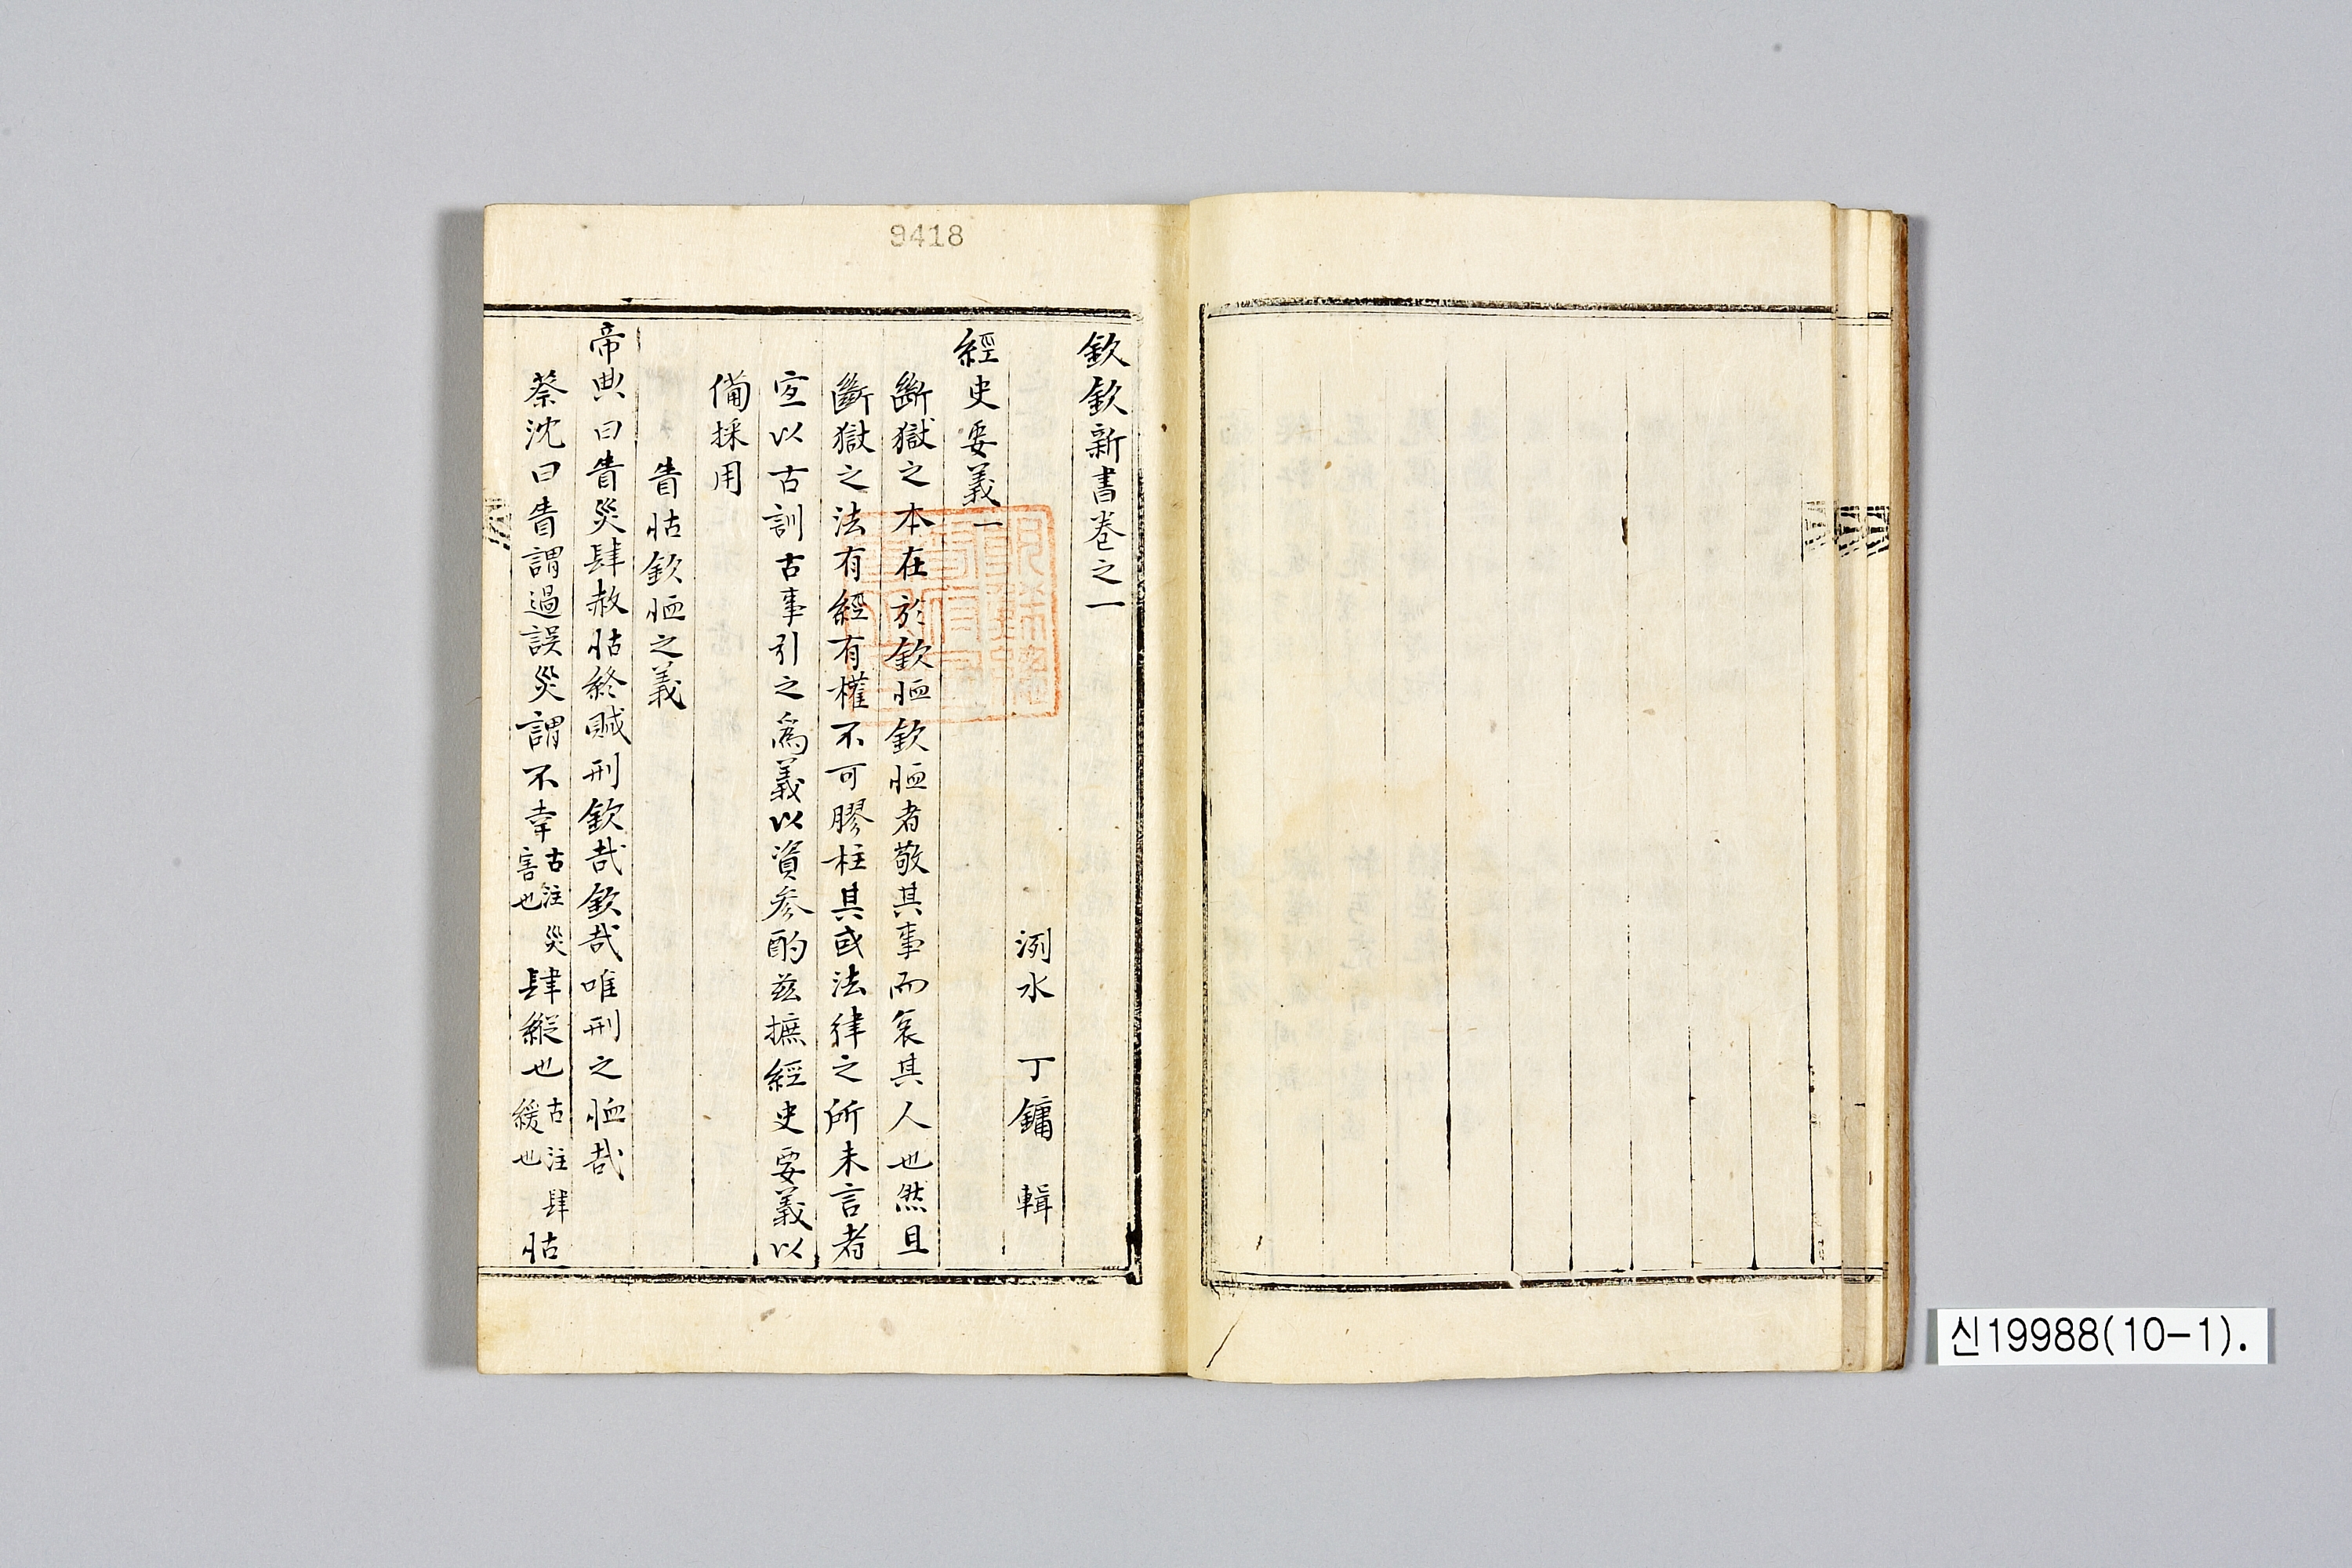 9418
欽欽新書卷之一
洌水 丁鏞 輯
經史要義一
斷獄之本在於欽恤欽恤者敬其事而哀其人也然且
斷獄之法有經有權不可膠柱其或法律之所未言者
宜以古訓古事引之爲義以資參酌玆摭經史要義以
備採用
眚怙欽恤之義
帝典曰眚災肆赦怙終賊刑欽哉欽哉唯刑之恤哉
蔡沈曰眚謂過誤災謂不幸古注災害也肆縱也古注肆緩也怙
신19988(10-1).